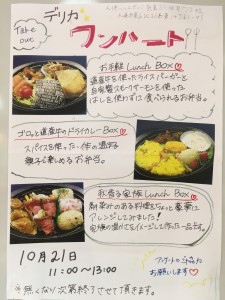 Take out
デリカ
ワンハート
お手軽 Lunch Box♡
道産牛を使ったライスバーガーと
自家製スモークサーモンを使った
はしを使わずに食べられるお弁当。
道産牛のドライカレー Box♡
スパイスを使った
親子で楽しめるお弁当。
秋香る家族 Lunch Box♡
ある料理をちょっと豪華に
アレンジしてみました!
家族の温かさをイメージして作った一品です。
10月21日
11:00~13:00
アンケートの
お願いします♡
※無くなり次第終了させて頂きます。